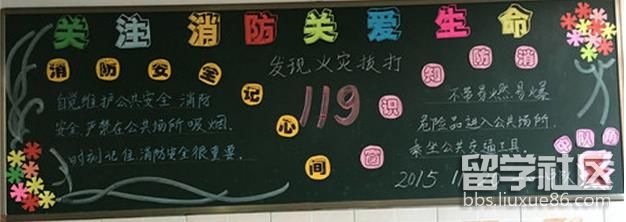 关注消防关爱生命
消防安全记心间
发现火灾拔打
119
消防知识窗
自觉维护公共安全 消防
安全,严禁在公共场所吸烟.
时刻记住消防安全很重要.
不带易燃易爆
危险品进入公共场所.
乘坐公共交通工具.
2015.11
留学社区
bbs.liuxue86.com